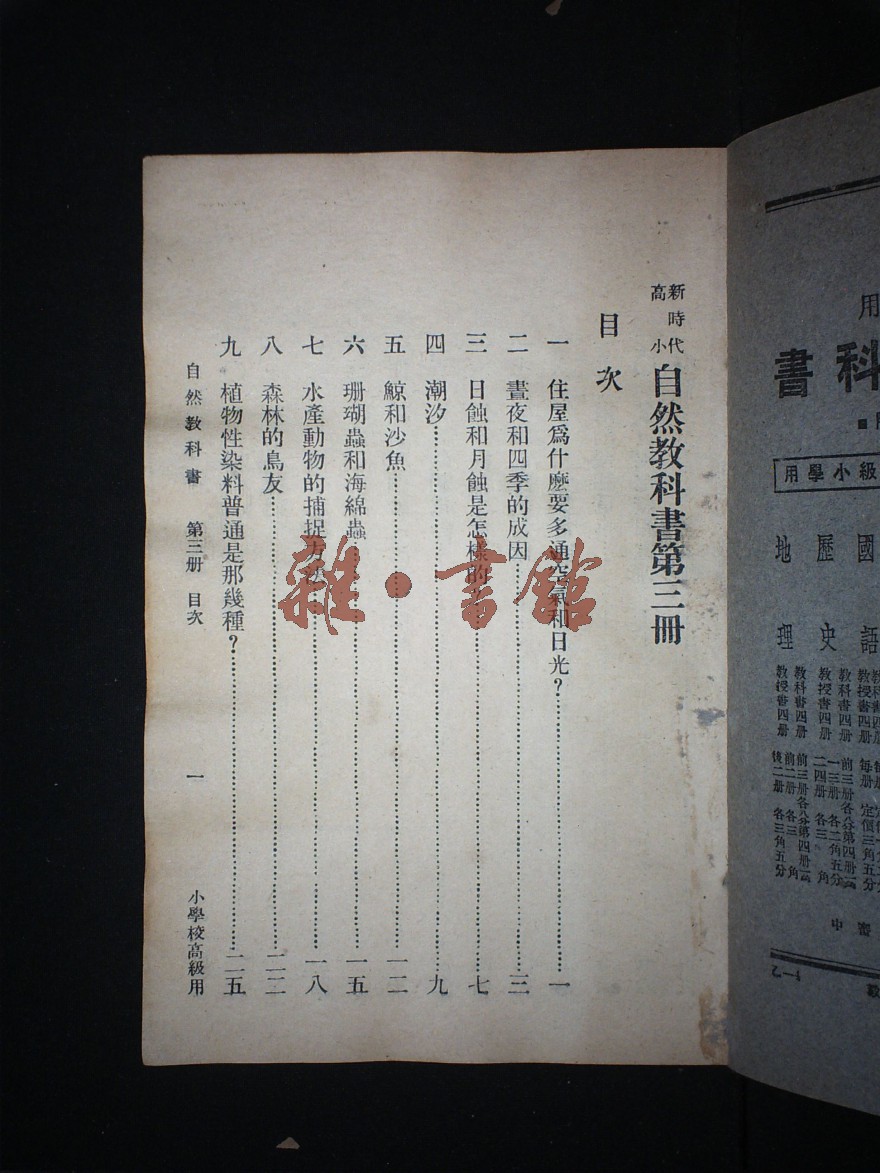 新時代
高小
自然教科書第三冊
目次
一 住屋爲什麼要多通空氣和日光?……一
二 晝夜和四季的成因……三
三 日蝕和月蝕是怎樣的……七
四 潮汐……九
五 鯨和沙魚……一二
六 珊瑚蟲和海綿蟲……一五
七 水產動物的捕捉方法……一八
八 森林的鳥友……二二
九 植物性染料普通是那幾種?……二五
自然教科書 第三册 目次 一 小學校高級用
雜·書館
用
科書
級小學用
國語
歷史
地理
教科書四册
教授書四册
教科書四册
教授書四册
乙—4